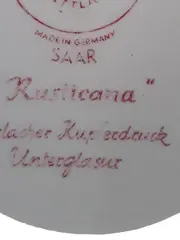 MADE IN GERMANY
SAAR
Rusticana"
Kupferdruck
Unterglasur